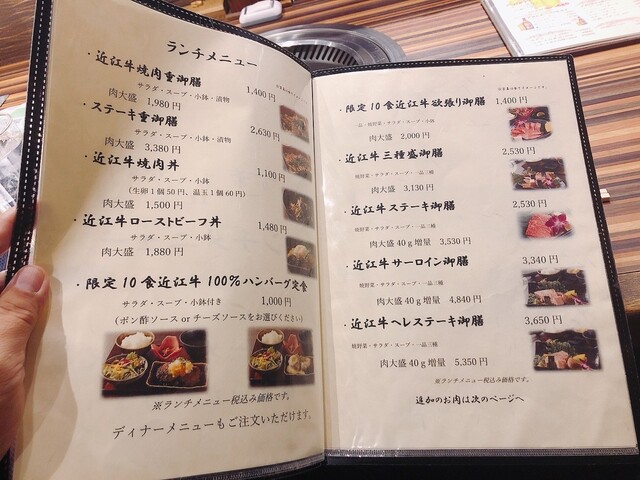 ランチメニュー
・近江牛焼肉重御膳 1,400円
サラダ・スープ・小鉢・漬物
肉大盛 1,980円
・ステーキ重御膳 2,630円
サラダ・スープ・小鉢・漬物
肉大盛 3,380円
・近江牛焼肉丼 1,100円
サラダ・スープ・小鉢
(生卵1個50円、温玉1個60円)
肉大盛 1,500円
・近江牛ローストビーフ丼 1,480円
サラダ・スープ・小鉢
肉大盛 1,880円
・限定10食近江牛100%ハンバーグ定食
サラダ・スープ・小鉢付き 1,000円
(ポン酢ソース or チーズソースをお選びください)
※ランチメニュー税込み価格です。
ディナーメニューもご注文いただけます。
・限定10食近江牛欲張り御膳 1,400円
焼野菜・サラダ・スープ・小鉢
肉大盛 2,000円
・近江牛三種盛御膳 2,530円
焼野菜・サラダ・スープ・一品三種
肉大盛 3,130円
・近江牛ステーキ御膳 2,530円
焼野菜・サラダ・スープ・一品三種
肉大盛40g増量 3,530円
・近江牛サーロイン御膳 3,340円
焼野菜・サラダ・スープ・一品三種
肉大盛40g増量 4,840円
・近江牛ヘレステーキ御膳 3,650円
焼野菜・サラダ・スープ・一品三種
肉大盛40g増量 5,350円
※ランチメニュー税込み価格です。
追加のお肉は次のページへ